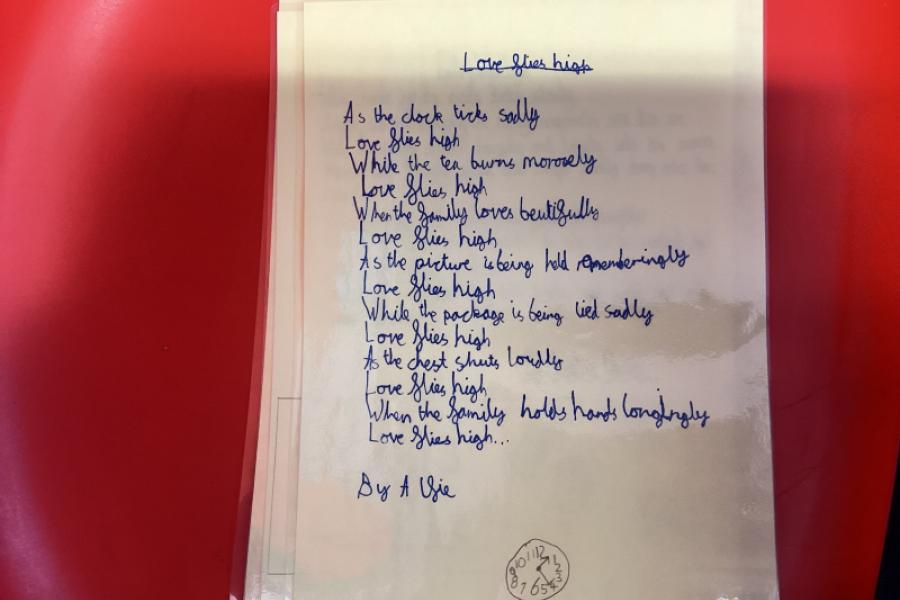 Love flies high
As the clock ticks sadly
Love flies high
While the tea burns morosely
Love flies high
When the family loves beutifully
Love flies high
As the picture is being held rememberingly
Love flies high
While the package is being tied sadly
Love flies high
As the chest shuts loudly
Love flies high
When the family holds hands longingly
Love flies high...
By A
12
11
1
10
2
9
3
8
4
7
6
5